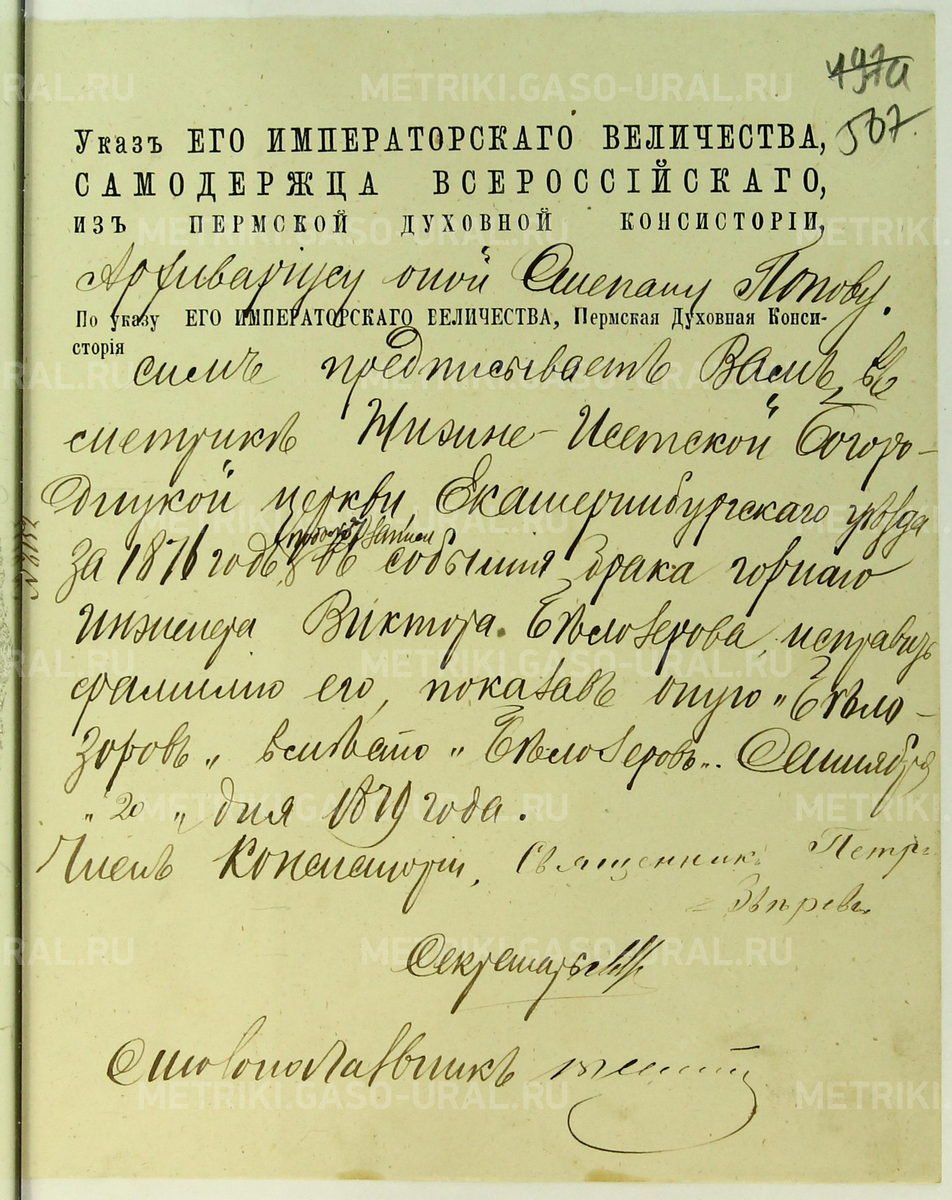 197а
507.
Указъ ЕГО ИМПЕРАТОРСКАГО ВЕЛИЧЕСТВА,
САМОДЕРЖЦА ВСЕРОССІЙСКАГО,
ИЗЪ ПЕРМСКОЙ ДУХОВНОЙ КОНСИСТОРІИ,
Архиваріусу оной Степану Попову.
По указу ЕГО ИМПЕРАТОРСКАГО ВЕЛИЧЕСТВА, Пермская Духовная Конси-
сторія симъ предписываетъ Вамъ, въ
метрикѣ Нижне-Исетской Богоро-
дицкой церкви, Екатеринбургскаго уѣзда
за 1876 годъ, въ событіи брака горнаго
инженера Виктора Бѣлозерова, исправить
фамилію его, показавъ оную „Бѣло-
зоровъ„ вмѣсто „Бѣлозеровъ„. Сентября
„20„ дня 1879 года.
Членъ Консисторіи, Священникъ Петръ
Секретарь
Столоначальникъ
METRIKI.GASO-URAL.RU